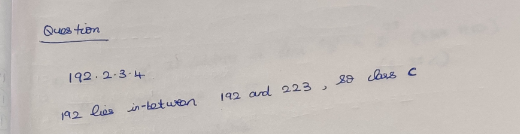 Question
192.2.3.4
192 lies in-between 192 and 223, so class C